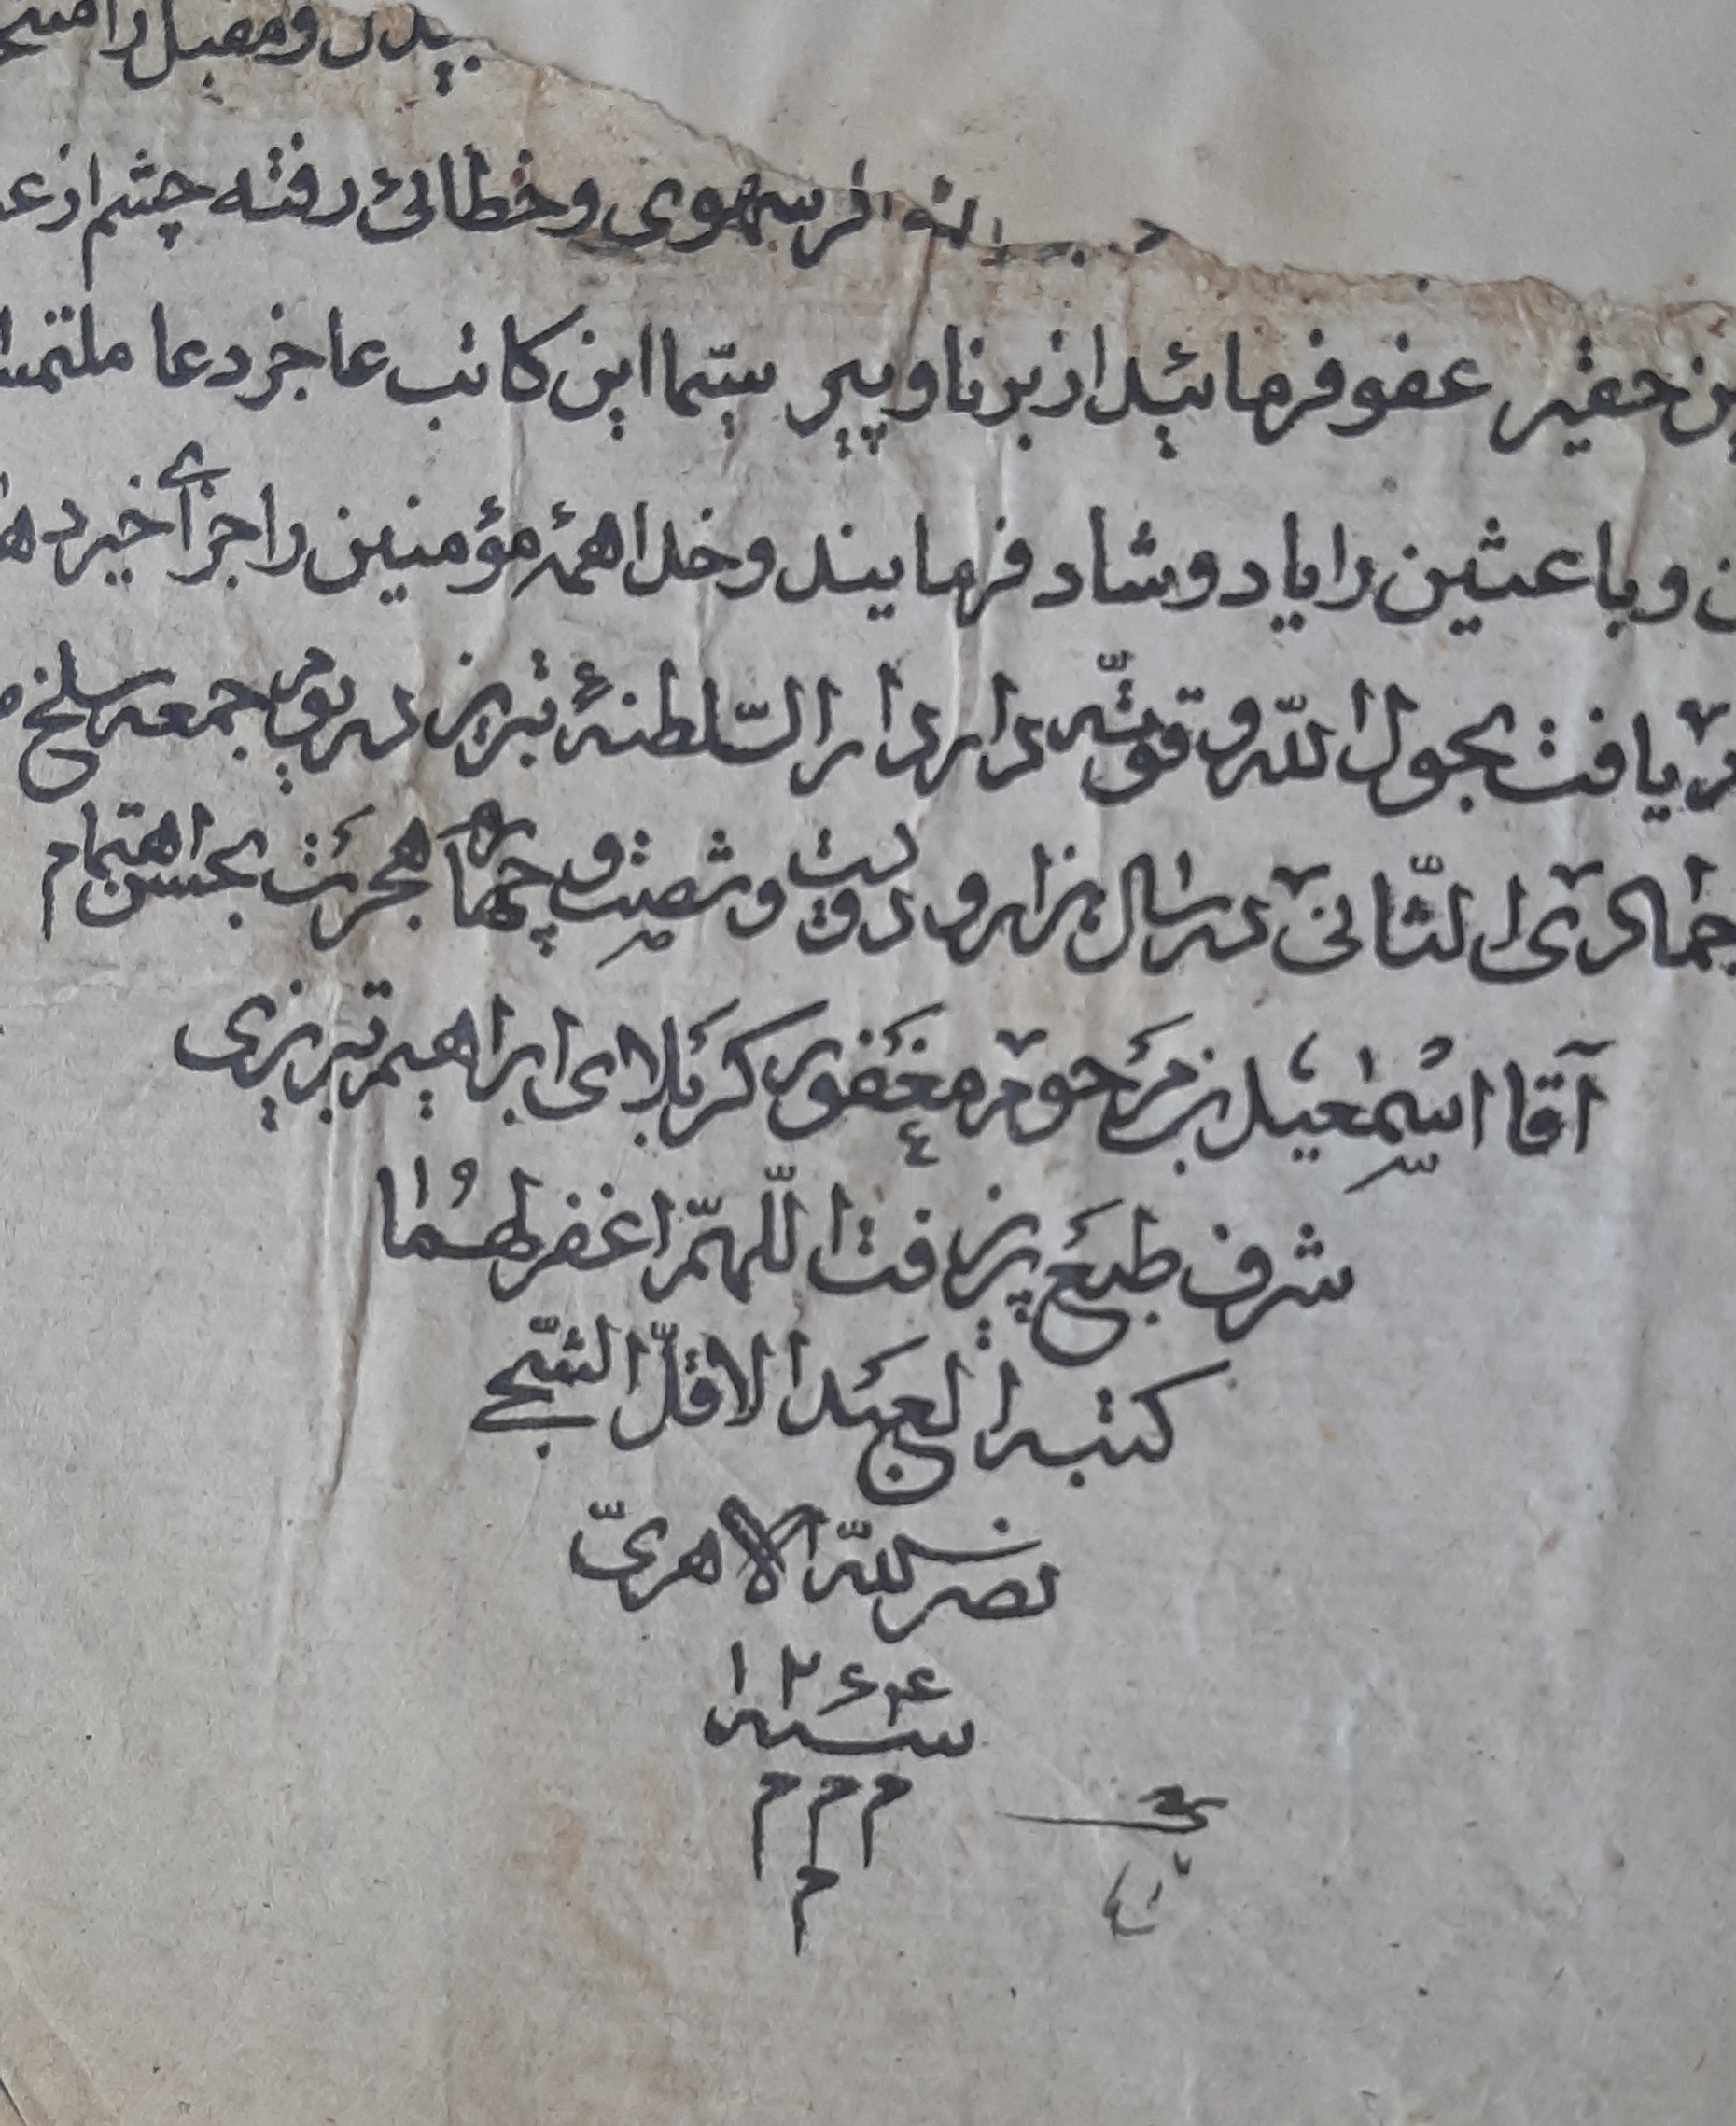 و مقبل را
اگر سهوی و خطائی رفته چشم از
حقیر عفو فرمائید از برنا و پیر سیّما این کاتب عاجز دعا
و باعثین را یاد و شاد فرمایند و خدا همهٔ مؤمنین را جزای خیر
یافت بحول اللّه و قوّته در دار السّلطنهٔ تبریز در یوم جمعه سلخ
جمادی الثّانی در سال هزار و دویست و شصت و چهار هجرت بحسن اهتمام
آقا اسمٰعیل بن مرحوم مغفور کربلای ابراهیم تبریزی
شرف طبع پذیرفت اللّهمّ اغفر لهما
کتبه العبد الاقلّ
نصر اللّه الاهریّ
۱۲۶۴
سنه
م م م
م